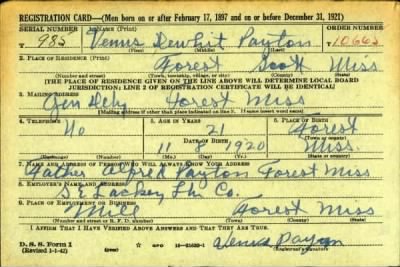 REGISTRATION CARD—(Men born on or after February 17, 1897 and on or before December 31, 1921)
SERIAL NUMBER 1. NAME (Print) ORDER NUMBER
U 985 Venus Dewhit Payton 10665
(First) (Middle) (Last)
2. PLACE OF RESIDENCE (Print)
Forest Scott Miss
(Number and street) (Town, township, village, or city) (County) (State)
[THE PLACE OF RESIDENCE GIVEN ON THE LINE ABOVE WILL DETERMINE LOCAL BOARD
JURISDICTION; LINE 2 OF REGISTRATION CERTIFICATE WILL BE IDENTICAL]
3. MAILING ADDRESS
Gen Dely Forest Miss
[Mailing address if other than place indicated on line 2. If same insert word same]
4. TELEPHONE 5. AGE IN YEARS 6. PLACE OF BIRTH
No 21 Forest
DATE OF BIRTH (Town or county)
11 8 1920 Miss.
(Mo.) (Day) (Yr.) (State or country)
7. NAME AND ADDRESS OF PERSON WHO WILL ALWAYS KNOW YOUR ADDRESS
Father Alfred Payton Forest Miss
8. EMPLOYER'S NAME AND ADDRESS
S E Lackey Co.
9. PLACE OF EMPLOYMENT OR BUSINESS
Mill Forest Miss
(Number and street or R. F. D. number) (Town) (County) (State)
I AFFIRM THAT I HAVE VERIFIED ABOVE ANSWERS AND THAT THEY ARE TRUE.
D. S. S. Form 1
(Revised 1-1-42) GPO 16—21630-1 Venus Payton
(Registrant's signature)